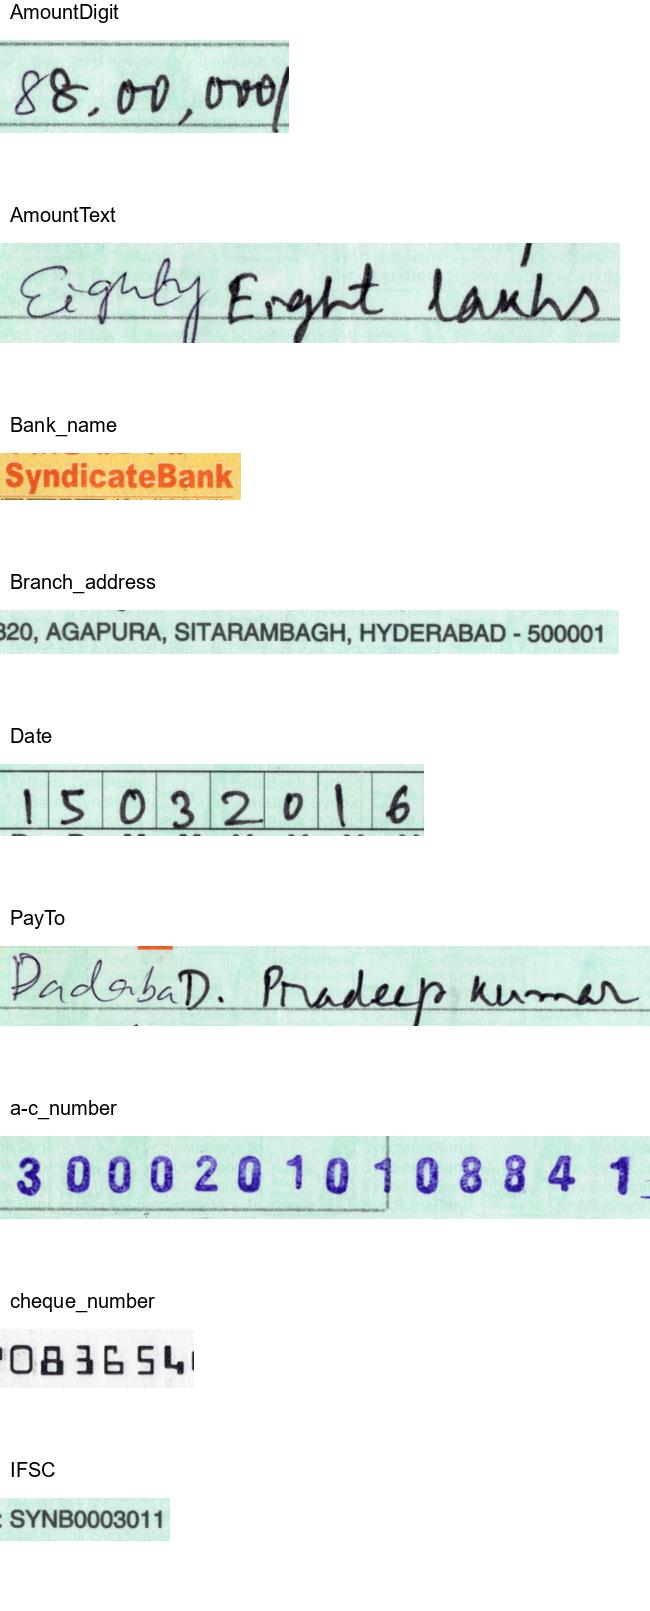 AmountDigit
88,00,000/
AmountText
Eighty Eight lakhs
Bank_name
SyndicateBank
Branch_address
320, AGAPURA, SITARAMBAGH, HYDERABAD - 500001
Date
15032016
PayTo
DadabaD. Pradeep kumar
a-c_number
30002010108841
cheque_number
083654
IFSC
: SYNB0003011